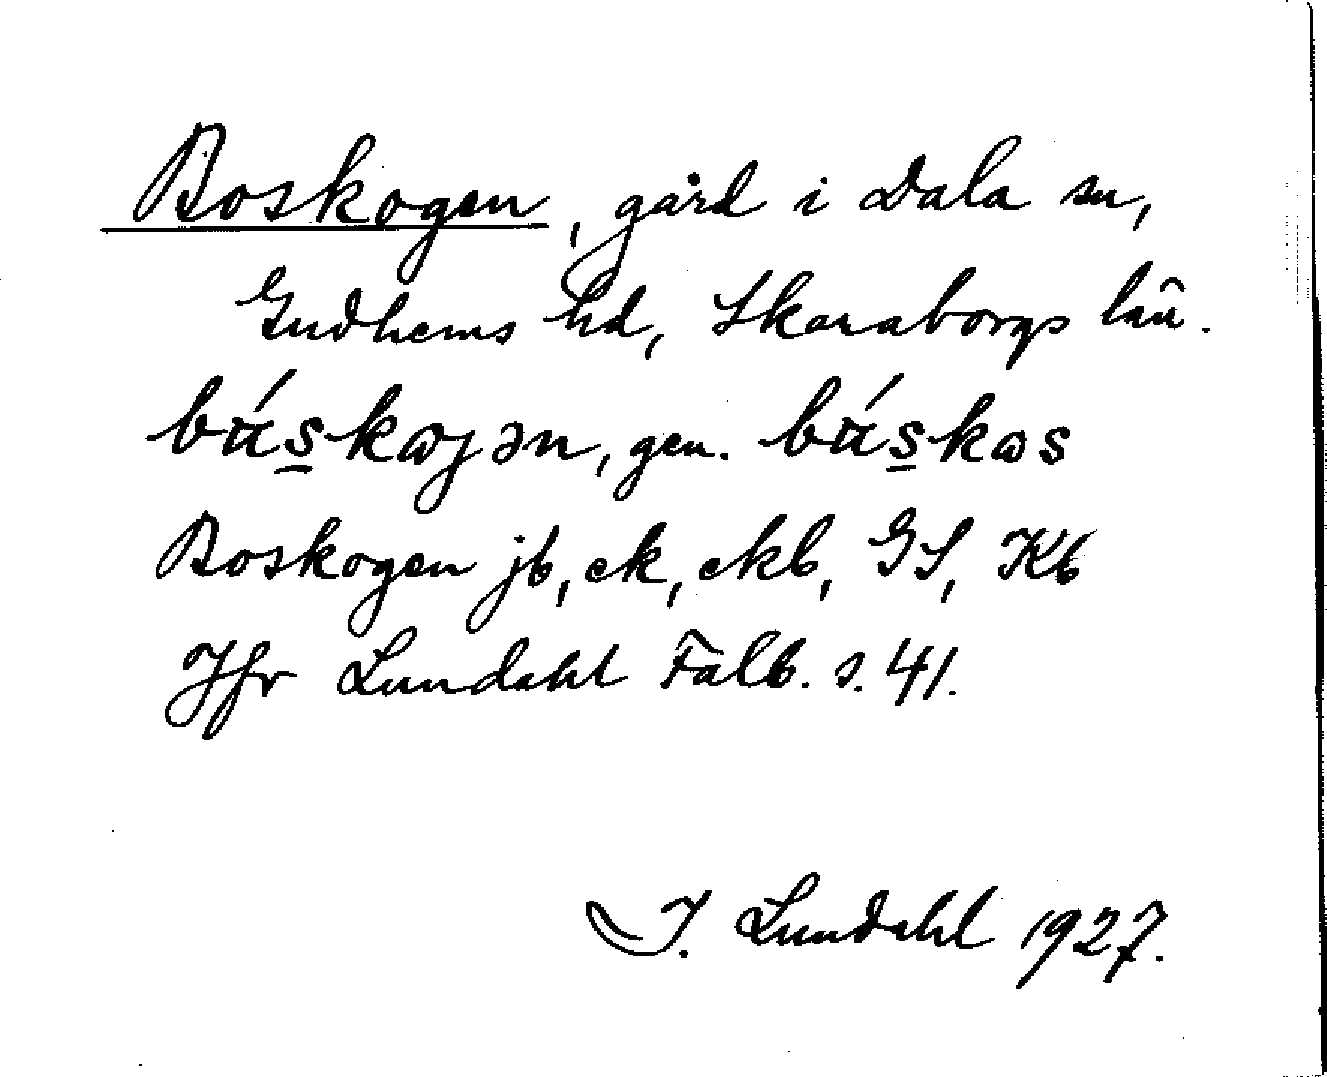 Boskogen, gård i Dala sn,
Gudhems hd, Skaraborgs län.
bɑ́s̲kωȷən, gen. bɑ́s̲kωs
Boskogen jb, ek, ekb, GS, Kb
Jfr Lundahl Falb. s. 41.
I. Lundahl 1927.